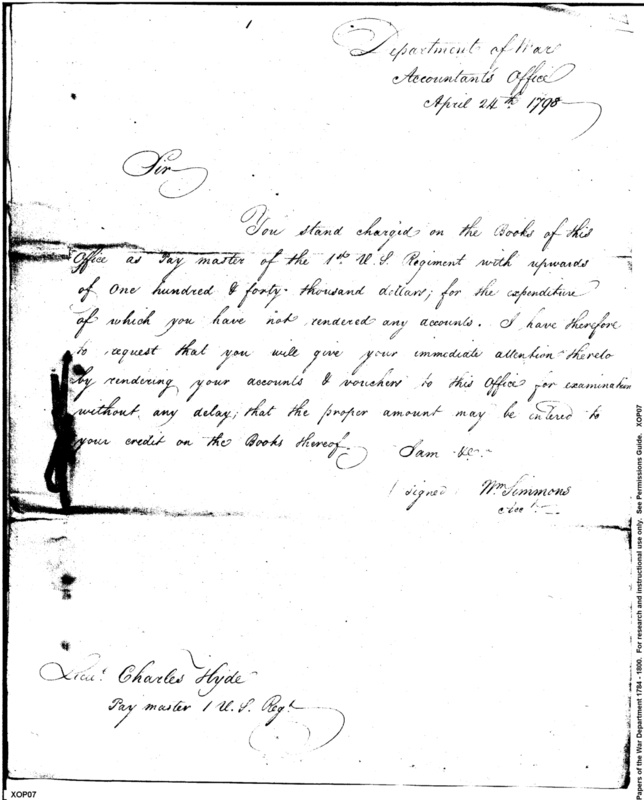 1
Department of War
Accountants Office
April 24th 1798
Sir
You stand charged on the Books of this
Office as Pay master of the 1st U.S. Regiment with upwards
of One hundred & forty thousand dollars; for the expenditure
of which you have not rendered any accounts. I have therefore
to request that you will give your immediate attention thereto
by rendering your accounts & vouchers to this Office for examination
without any delay; that the proper amount may be entered to
your credit on the Books thereof.
I am &c.
signed Wm Simmons
Acct.
Lieut. Charles Hyde
Pay master 1 U.S. Regt
XOP07
Papers of the War Department 1784 - 1800. For research and instructional use only. See Permissions Guide. XOP07